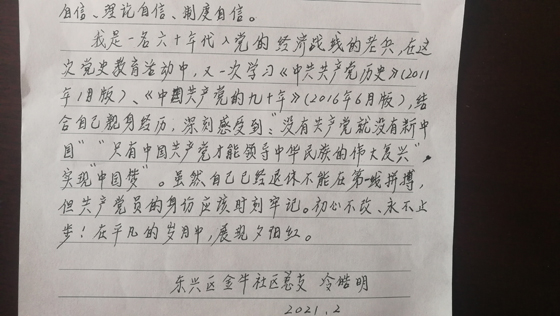 自信、理论自信、制度自信。
我是一名六十年代入党的经济战线的老兵,在这
次党史教育活动中,又一次学习《中共共产党历史》(2011
年1月版)、《中国共产党的九十年》(2016年6月版),结
合自己亲身经历,深刻感受到:“没有共产党就没有新中
国”“只有中国共产党才能领导中华民族的伟大复兴”,
实现“中国梦”。虽然自己已经退休不能在第一线拼搏,
但共产党员的身份应该时刻牢记。初心不改、永不止
步!在平凡的岁月中,展现夕阳红。
东兴区金牛社区总支 冷皓明
2021.2